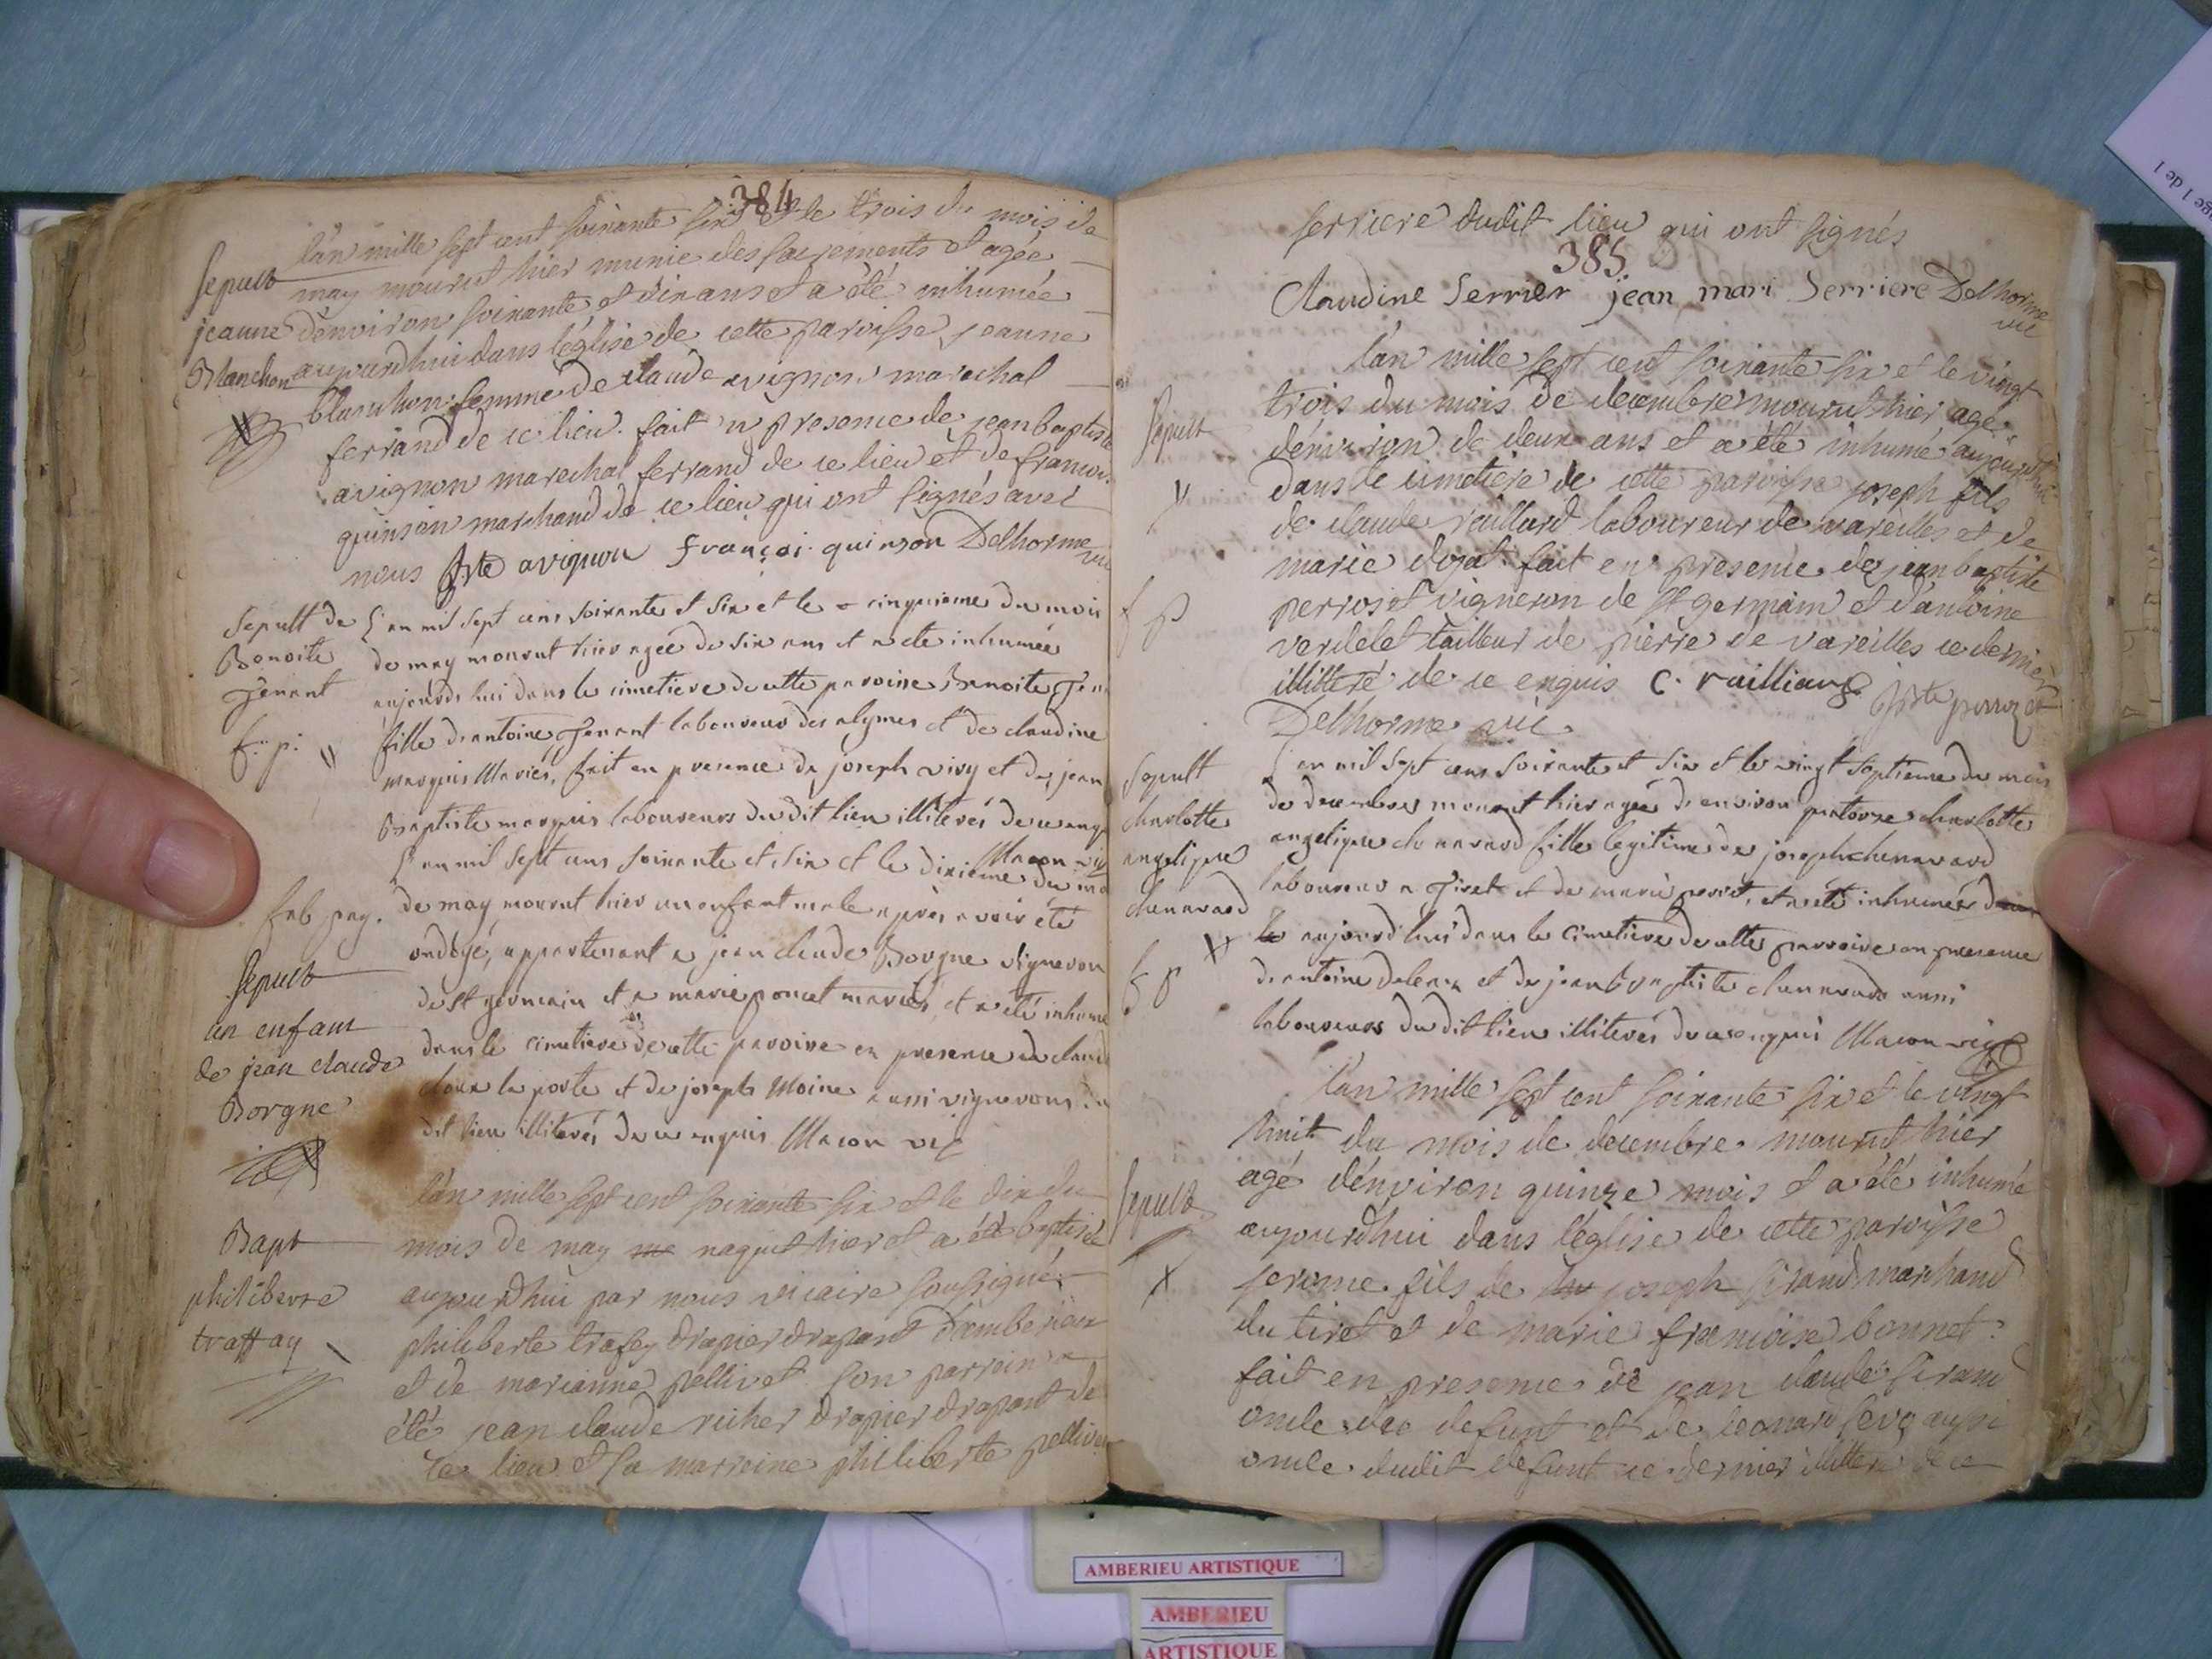 384
l'an mille sept cent soixante six et le trois du mois de
may mourut hier munie des sacrements et agée
d'environ soixante et dix ans et a été inhumée
aujourdhui dans l'église de cette paroisse jeanne
blanchon femme de claude avignon marechal
ferrand de ce lieu. fait en presence de jean baptiste
avignon marechal ferrand de ce lieu et de francois
quinson marchand de ce lieu qui ont signés avec
nous Bte avignon françoi quinson Delhorme vic
Sepult
jeanne
Blanchon
L'an mil sept cens soixante et six et le cinquieme du mois
de may mourut hier agée de six ans et a eté inhumée
aujourds hui dans le cimetiere de cette paroisse Benoite
fille d'antoine Jenant laboureur des alymes et de claudine
marquis Mariés, fait en presence de joseph vivy et de jean
Baptiste marquis laboureurs du dit lieu illiterés de ce enquis
Macon vic
Sepult de
Benoite
Jenant
f. p.
L'an mil sept cens soixante et six et le dixieme du
de may mourut hier un enfant male après avoir été
ondoyé, appartenant a jean claude Borgne vigneron
de st germain et a marie poncet mariés, et a été inhumé
dans le cimetiere de cette paroisse en presence de
la porte et de joseph Moine aussi vignerons du
dit lieu illiterés de ce enquis Macon vic
fab. pay.
Sepult
un enfant
de jean claude
Borgne
l'an mille sept cent soixante six et le dix du
mois de may naquit hier et a été baptisée
aujourdhui par nous vicaire soussigné
philiberte trafey drapier drapant d'amberieux
et de marianne pellivet son parrein a
été jean claude richer drapier drapant de
ce lieu et sa marreine philiberte pellivet
Bapt
philiberte
traffay
serriere dudit lieu qui ont signés
385
Claudine Serrier jean mari Serriere Delhorme
vic
l'an mille sept cent soixante six et le vingt
trois du mois de decembre mourut hier agé
d'environ de deux ans et a été inhumé aujourdhui
dans le cimetiere de cette paroisse joseph fils
de claude raillard laboureur de vareilles et de
marie dojat fait en presence de jean baptiste
perroset vigneron de st germain et d'antoine
verdelet tailleur de pierre de vareilles ce dernier
illitteré de ce enquis C. railliard Jbte perrozet
Delhorme vic
Sepult
f p
L'an mil sept cens soixante et six et le vingt septieme du mois
de decembre mourut hier agée d'environ quatorze charlotte
angelique chenavard fille legitime de joseph chenavard
laboureur a Tiret et de marie perret, et a été inhumée
le aujourd'hui dans le cimetiere de cette parroisse en presence
d'antoine et de jean baptiste chenavard aussi
laboureurs du dit lieu illiterés de ce enquis Macon vic
Sepult
charlotte
angelique
chenavard
f p
l'an mille sept cent soixante six et le vingt
huit du mois de decembre mourut hier
agé d'environ quinze mois et a été inhumé
aujourdhui dans l'église de cette paroisse
jerome fils de joseph sirand marchand
du tiret et de marie francoise bonnet
fait en presence de jean claude sirand
oncle du defunt et de leonard aussi
oncle dudit defunt ce dernier illitteré de ce
Sepult
AMBERIEU ARTISTIQUE
AMBERIEU
ARTISTIQUE